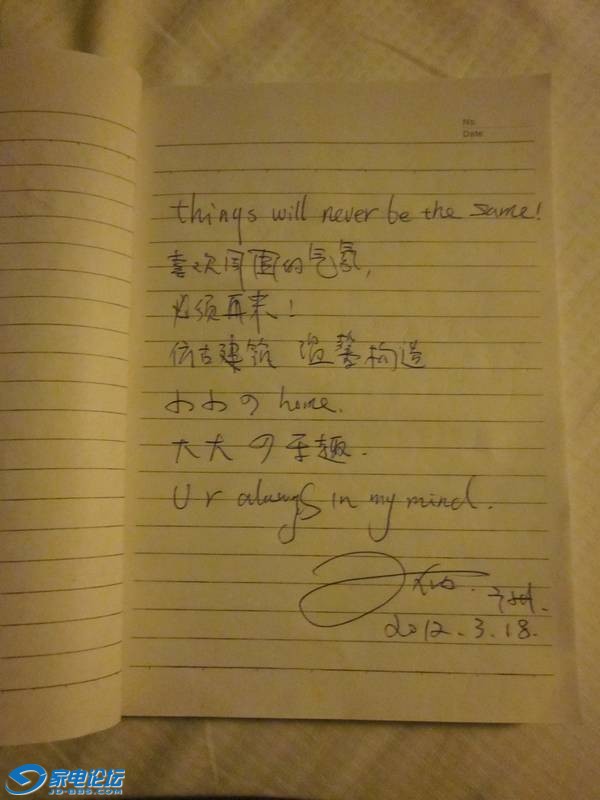 No
Date
things will never be the same!
喜欢周围的气氛,
必须再来!
仿古建筑 温馨构造
小小の home.
大大の乐趣.
U r always in my mind.
2012.3.18.
家电论坛
JD-BBS.COM